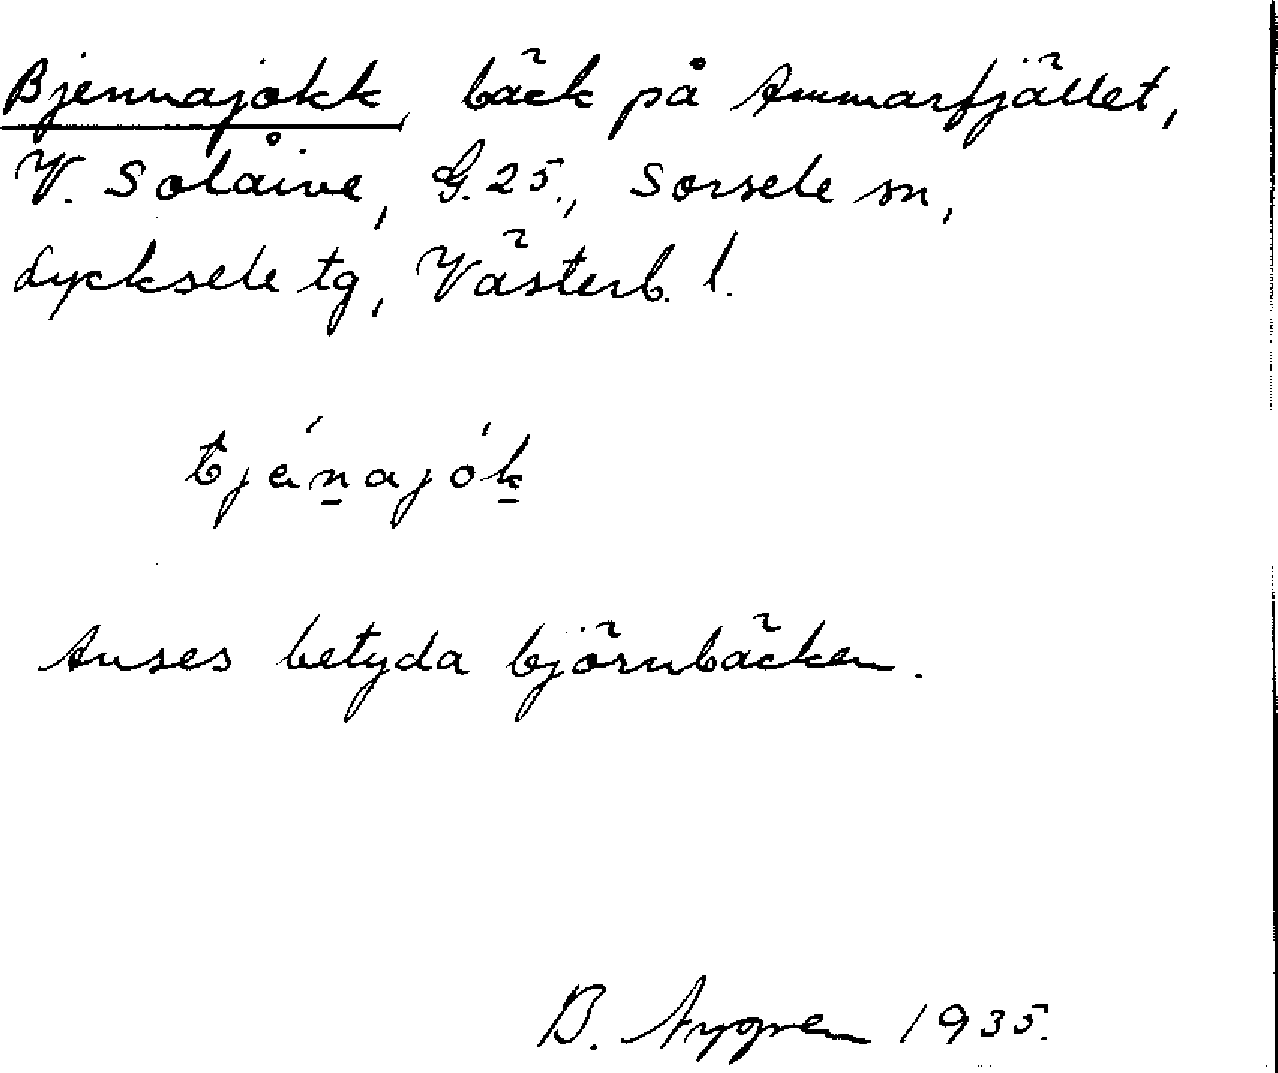 Bjennajokk, bäck på Ammarfjället,
V. Solåive, G.25., Sorsele sn,
Lycksele tg, Västerb. l.
bjénajók
Anses betyda björnbäcken.
B. Nygren 1935.